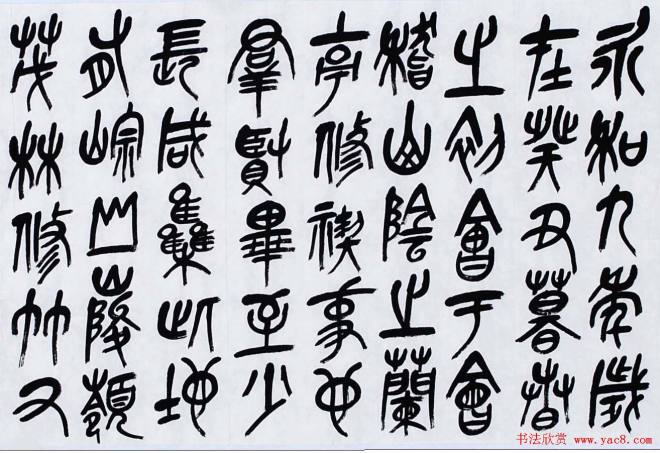 永和九年歲
在癸丑暮春
之初會于會
稽山陰之蘭
亭修禊事也
羣賢畢至少
長咸集此地
有崇山峻領
茂林修竹又
书法欣赏 www.yac8.com